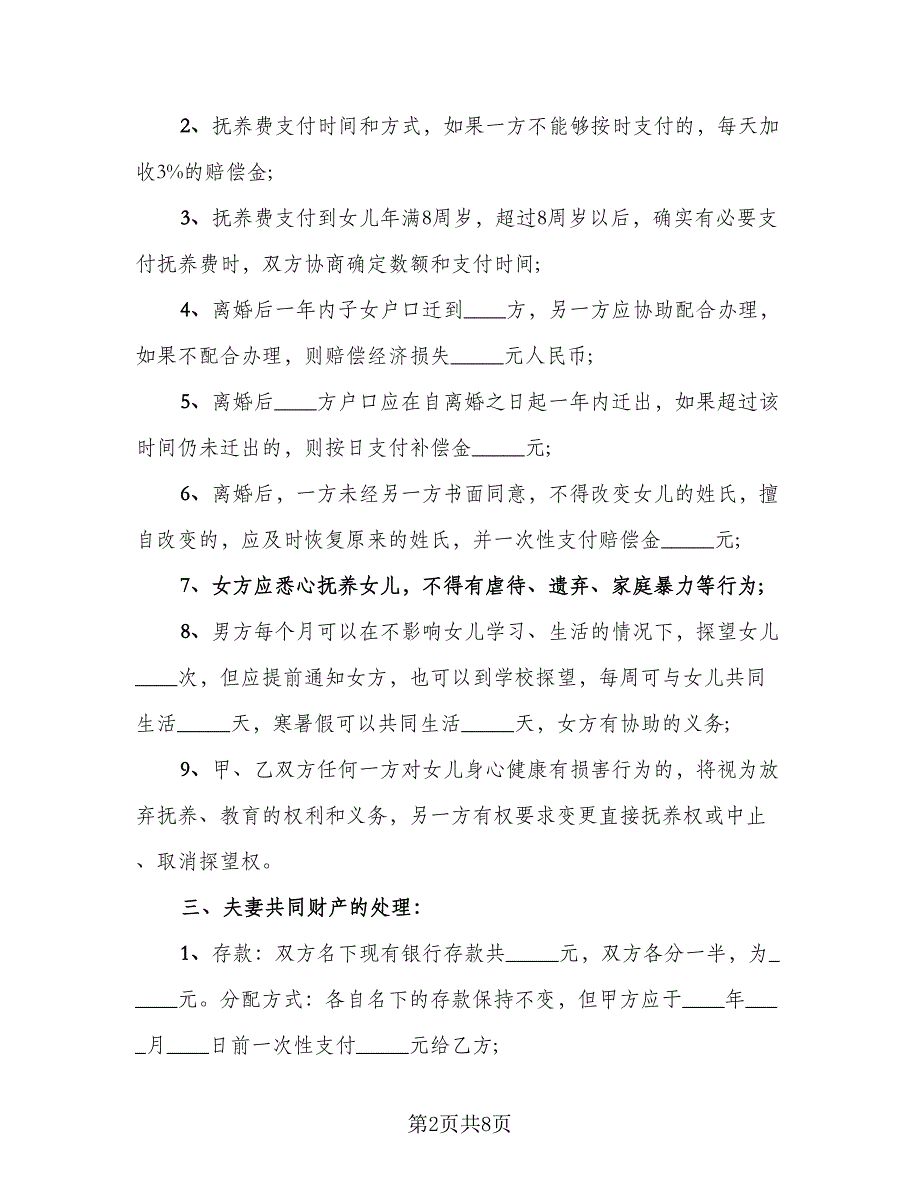 2、抚养费支付时间和方式，如果一方不能够按时支付的，每天加
收3%的赔偿金;
3、抚养费支付到女儿年满8周岁，超过8周岁以后，确实有必要支
付抚养费时，双方协商确定数额和支付时间;
4、离婚后一年内子女户口迁到____方，另一方应协助配合办理，
如果不配合办理，则赔偿经济损失_____元人民币;
5、离婚后____方户口应在自离婚之日起一年内迁出，如果超过该
时间仍未迁出的，则按日支付补偿金_____元;
6、离婚后，一方未经另一方书面同意，不得改变女儿的姓氏，擅
自改变的，应及时恢复原来的姓氏，并一次性支付赔偿金_____元;
7、女方应悉心抚养女儿，不得有虐待、遗弃、家庭暴力等行为;
8、男方每个月可以在不影响女儿学习、生活的情况下，探望女儿
____次，但应提前通知女方，也可以到学校探望，每周可与女儿共同
生活_____天，寒暑假可以共同生活_____天，女方有协助的义务;
9、甲、乙双方任何一方对女儿身心健康有损害行为的，将视为放
弃抚养、教育的权利和义务，另一方有权要求变更直接抚养权或中止
、取消探望权。
三、夫妻共同财产的处理：
1、存款：双方名下现有银行存款共_____元，双方各分一半，为_
____元。分配方式：各自名下的存款保持不变，但甲方应于____年___
_月____日前一次性支付_____元给乙方;
第2页共8页